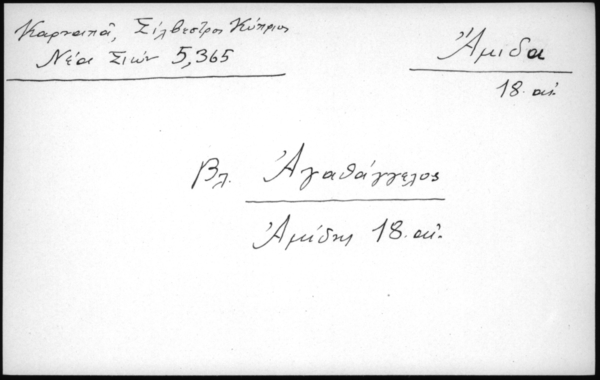 Καρναπᾶ, Σίλβεστρος Κύπριος
Νέα Σιών 5,365
Ἄμιδα
18. αἰ.
Βλ. Ἀγαθάγγελος
Ἀμίδης 18. αἰ.